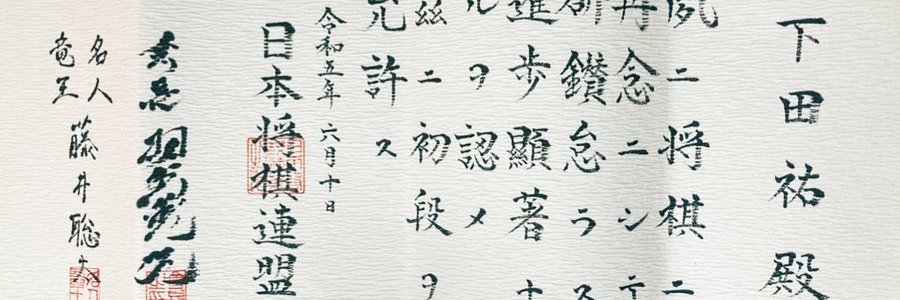 下田祐殿
夙ニ将棋ニ
丹念ニシテ
研鑽怠ラス
進歩顕著ナ
ルヲ認メ
茲ニ初段ヲ
允許ス
令和五年六月十日
日本将棋連盟
会長 羽生善治
名人
竜王 藤井聡太